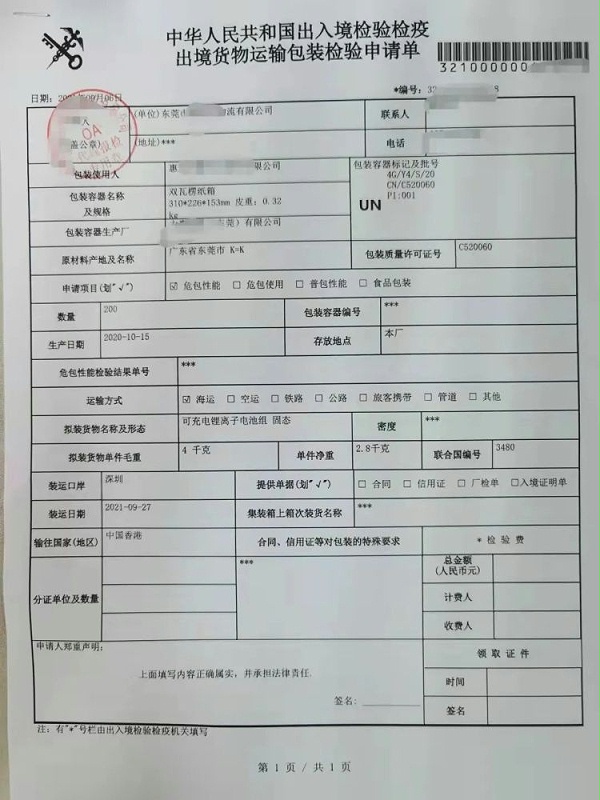 中华人民共和国出入境检验检疫
出境货物运输包装检验申请单
321000000
日期: 年09月06日
*编号:
人
盖公章)
(单位)东莞市 物流有限公司
(地址)***
OA
联系人
电话
包装使用人
惠 有限公司
包装容器标记及批号
4G/Y4/S/20
CN/C520060
PI:001
UN
包装容器名称
及规格
双瓦楞纸箱
310*226*153mm 皮重: 0.32
kg
包装容器生产厂
莞）有限公司
原材料产地及名称
广东省东莞市 K=K
包装质量许可证号
C520060
申请项目(划"√")
☑ 危包性能 □ 危包使用 □ 普包性能 □ 食品包装
数量
200
包装容器编号
***
生产日期
2020-10-15
存放地点
本厂
危包性能检验结果单号
***
运输方式
☑ 海运 □ 空运 □ 铁路 □ 公路 □ 旅客携带 □ 管道 □ 其他
拟装货物名称及形态
可充电锂离子电池组 固态
密度
***
拟装货物单件毛重
4 千克
单件净重
2.8千克
联合国编号
3480
装运口岸
深圳
提供单据(划"√")
□ 合同 □ 信用证 □ 厂检单 □入境证明单
装运日期
2021-09-27
集装箱上箱次装货名称
***
输往国家(地区)
中国香港
合同、信用证等对包装的特殊要求
* 检 验 费
分证单位及数量
***
总金额
(人民币元)
计费人
收费人
申请人郑重声明:
上面填写内容正确属实，并承担法律责任.
签名:
领 取 证 件
时间
签名
注: 有"*"号栏由出入境检验检疫机关填写
第 1 页 / 共 1 页